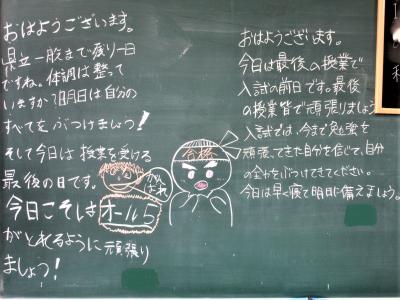 おはようございます。
県立一般まで残り一日
ですね。体調は整って
いますか?明日は自分の
すべてをぶつけましょう!
そして今日は授業を受ける
最後の日です。
今日こそは オール5
がとれるように頑張り
ましょう!
がんばれ
合格
おはようございます。
今日は最後の授業で
入試の前日です。最後
の授業皆で頑張りましょう
入試では、今まで勉強を
頑張ってきた自分を信じて、自分
の全力をぶつけてきてください。
今日は早く寝て明日に備えましょう。